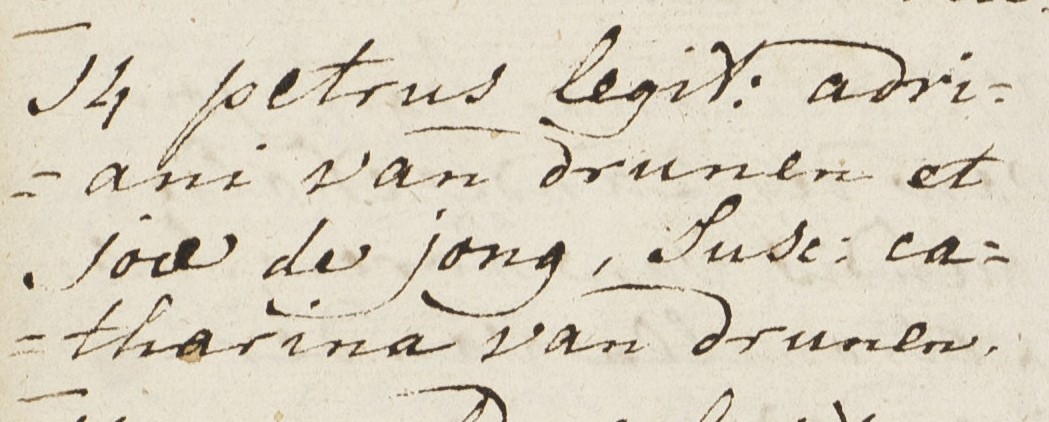 14 petrus legit: adri-
-ani van drunen et
joæ de jong, Susc: ca-
-tharina van drunen.